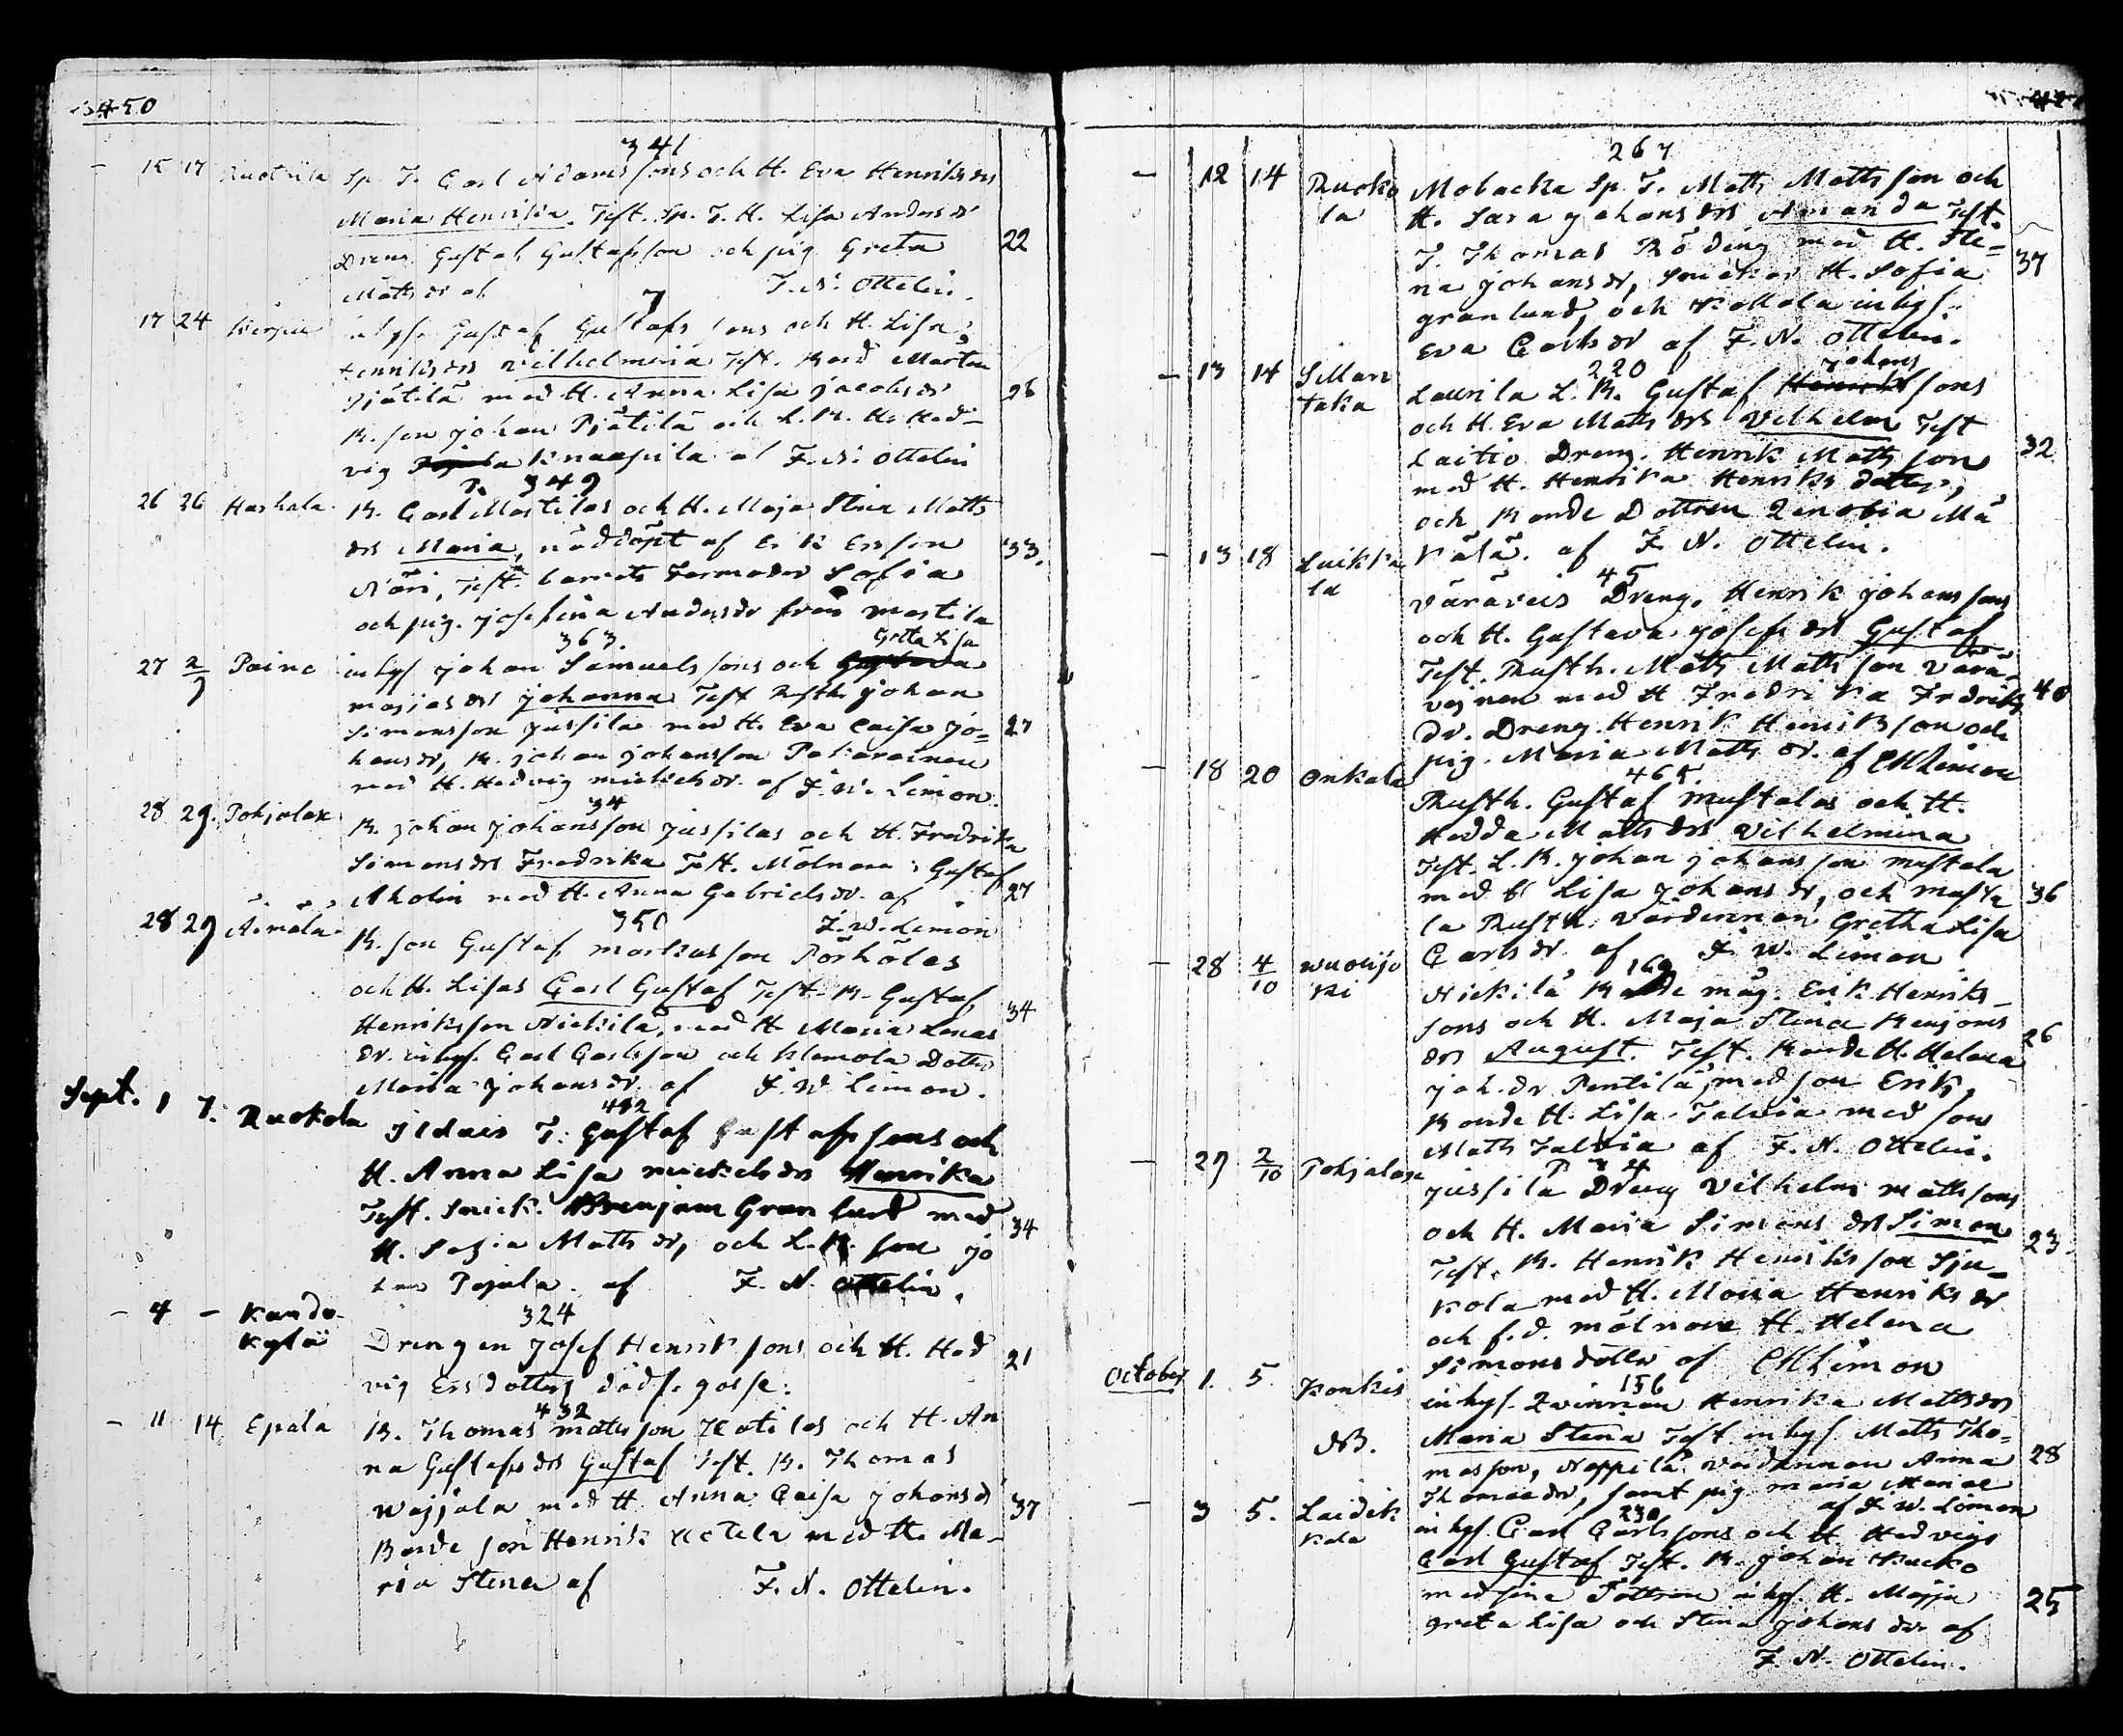 450
341
15 17 Ruotsila Sp. T. Carl Adams sons och H. Eva Henriks drs
Maria Henrika. Test. Sp. T. H. Lisa Anders dr
Dreng Gustaf Gustafsson och pig Greta 22
Matts dr af F. N. Ottelin.
7
17 24 inhys. Gustaf Gustafs sons och H. Lisa
Henriks drs Vilhelmina Test. Bond Mårten
Pjätilä med H. Anna Lisa Jacobs dr 26
B. son Johan Pjätilä och L. B. H. Hed-
vig Knaapila af F. N. Ottelin
349
26 26 Harhala B. Carl Mostilas och H. Maja Stina Matts
drs Maria, nöddöpt af Erk Ersson 33.
Näri, Test. barnets Farmoder Sofia
och pig. Josefina Anders dr från Mostila
363. Greta Lisa
27 2/9 Poinc inhys Johan Samuels sons och
drs Johanna Test Rusth. Johan
Simonsson Jussila med H. Eva Caisa Jo= 27
hans dr, B. Johan Johansson Pakarainen
med H. Hedvig Mickels dr. af F. W. Limon.
34
28 29. Pohjalax B. Johan Johansson Jussilas och H. Fredrika
Simons drs Fredrika Test. Mölnare Gustaf
Aholin med H. Anna Gabriels dr. af 27
F. W. Limon
350
28 29 B. son Gustaf Markusson Pörhölas
och H. Lisas Carl Gustaf Test. B. Gustaf
Henriksson Nickilä, med H. Maria Lenas 34
dr. inhys. Carl Carlsson och Klemola Dotter
Maria Johans dr. af F. W. Limon.
482
Sept. 1 7. Ruokola T. Gustaf Gustafs sons och
H. Anna Lisa Mickels drs Henrika
Test. Snick. Brenjam Granlund med 34
H. Sofia Matts dr, och L. B. son Jo
han Pajula. af F. N. Ottelin.
324
– 4 – Kando- Drengen Josef Henrik sons och H. Hed
kylä vig Ersdotters dödf. gosse. 21
432
– 11 14 Epala B. Thomas Matsson Katilas och H. An
na Gustafs drs Gustaf Test. B. Thomas
Wajjala med H. Anna Caisa Johans d 37
Bonde son Henrik med H. Ma-
ria Stina af F. N. Ottelin.
267
– 12 14 Ruoko Mobacka Sp. T. Matts Matts son och
la H. Sara Johans drs Amanda Test.
T. Thomas Röding med H. Ste= 37
na Johans dr, Snickar H. Sofia
Granlund, och Kollola inhys.
Eva Carls dr af F. N. Ottelin.
220 Johans
– 13 14 Sillan Laurila L. B. Gustaf Henriks sons
taka och H. Eva Matts drs Vilhelm Test
Laitio Dreng. Henrik Matts son 32
med H. Henrika Henriks dotter,
och Bonde Dottren Zenobia Mä
kälä. af F. N. Ottelin.
45
– 13 18 Luikka Väräveis Dreng. Henrik Johans sons
la och H. Gustava Josefs drs Gustaf
Test. Rusth. Matts Matts son Värä-
vejnen med H Fredrika Fredriks 40
dr. Dreng. Henrik Henriksson och
pig. Maria Matts dr. af Limon
465.
– 18 20 Onkala Rusth. Gustaf Mustalas och H.
Hedda Matts drs Vilhelmina
Test. L. B. Johan Johansson Mustala
med H Lisa Johans dr, och Musta 36
la Rusth. Värdinnan Gretha Lisa
Carls dr. af F. W. Limon
169
– 28 4/10 Wuolijo Nickilä Bonde måg. Erik Henriks-
ki sons och H. Maja Stina Benjams
drs August. Test. Bonde H. Helena 26
Joh. dr Pentilä, med son Erik,
Bonde H. Lisa Talvia med son
Matts Talvia af F. N. Ottelin.
34
– 29 2/10 Pohjalax Jussila Dreng Vilhelm Mattssons
och H. Maria Simons drs Simon 23
Test. B. Henrik Henriksson Sju-
kola med H. Maria Henriks dr
och f.d. mölnare H. Helena
Simons dotter af Limon
156
October 1. 5. Konkis inhys. Qvinnan Henrika Matts drs
NB. Maria Stina Test. inhys. Matts Tho-
masson, Noppila Värdinnan Anna 28
Thomas dr, samt pig Maria
af F. W. Limon
230
– 3 5. Laidik inhys. Carl Carls sons och H Hedvigs
kala Carl Gustaf Test. B. Johan
med sine Dottren inhys. H. Majja 25
Greta Lisa och Stina Johans dr af
F. N. Ottelin.